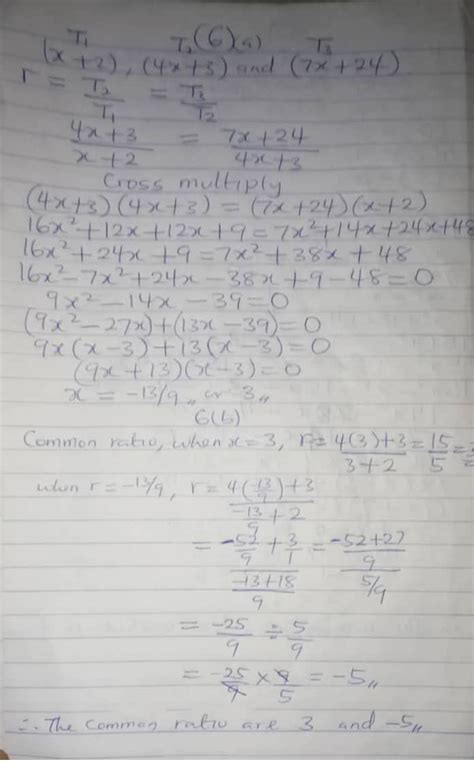 T₁ T₂ (6)(a) T₃
(x+2), (4x+3) and (7x+24)
r = T₂/T₁ = T₃/T₂
(4x+3)/(x+2) = (7x+24)/(4x+3)
Cross multiply
(4x+3)(4x+3) = (7x+24)(x+2)
16x²+12x+12x+9=7x²+14x+24x+48
16x²+24x+9=7x²+38x+48
16x²-7x²+24x-38x+9-48=0
9x²-14x-39=0
(9x²-27x)+(13x-39)=0
9x(x-3)+13(x-3)=0
(9x+13)(x-3)=0
x = -13/9,, or 3,,
6(b)
Common ratio, when x=3, r = (4(3)+3)/(3+2) = 15/5 =
when r=-13/9, r = (4(-13/9)+3)/(-13/9+2)
= (-52/9 + 3/1)/((-13+18)/9) = ((-52+27)/9)/(5/9)
= -25/9 ÷ 5/9
= -25/9 × 9/5 = -5,,
∴ The common ratio are 3 and -5,,